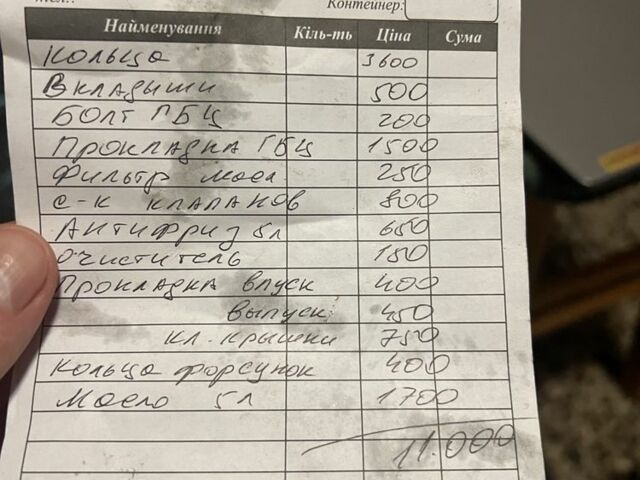 Контейнер:
Найменування Кіль-ть Ціна Сума
Кольца 3600
Вкладыши 500
БОЛТ ГБЦ 200
Прокладка ГБЦ 1500
Фильтр масл. 250
с-к клапанов 800
Антифриз 5л 650
Очиститель 150
Прокладка впуск 400
выпуск 450
кл. крышки 750
Кольца форсунок 400
Масло 5л 1700
11.000